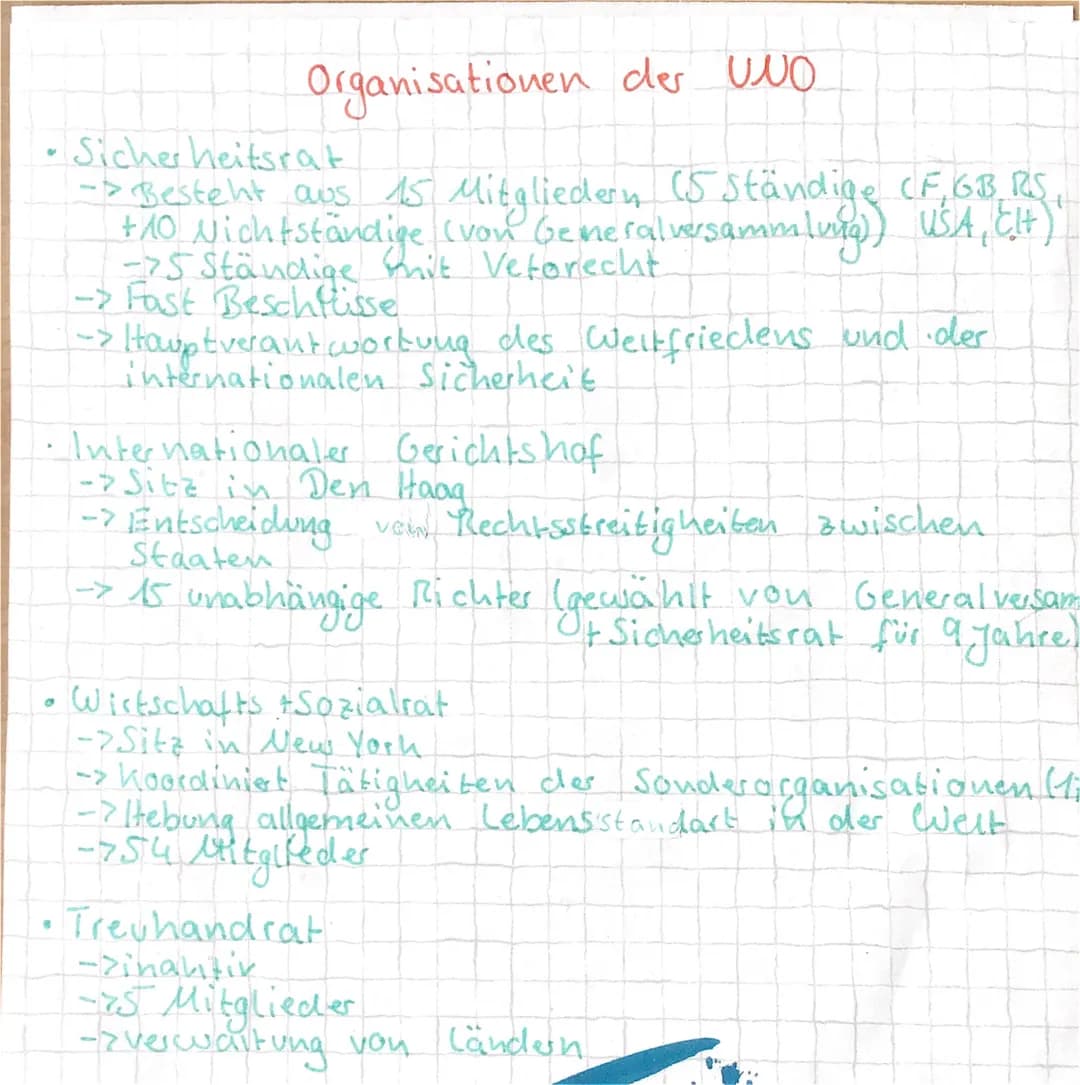 Organisationen der UNO
• Sicherheitsrat
-> Besteht aus 15 Mitgliedern (5 Ständige (F, GB, RS,
+10 Nichtständige (von Generalversammlung)) USA, CH)
-> 5 Ständige mit Vetorecht
-> Fast Beschlüsse
-> Hauptverantwortung des Weltfriedens und der
internationalen Sicherheit
• Internationaler Gerichtshof
-> Sitz in Den Haag
-> Entscheidung von Rechtsstreitigkeiten zwischen
Staaten
-> 15 unabhängige Richter (gewählt von Generalversam
+ Sicherheitsrat für 9 Jahre)
• Wirtschafts + Sozialrat
-> Sitz in New York
-> Koordiniert Tätigkeiten der Sonderorganisationen
-> Hebung allgemeinen Lebensstandart in der Welt
-> 54 Mitglieder
• Treuhandrat
-> inaktiv
-> 5 Mitglieder
-> verwaltung von Ländern